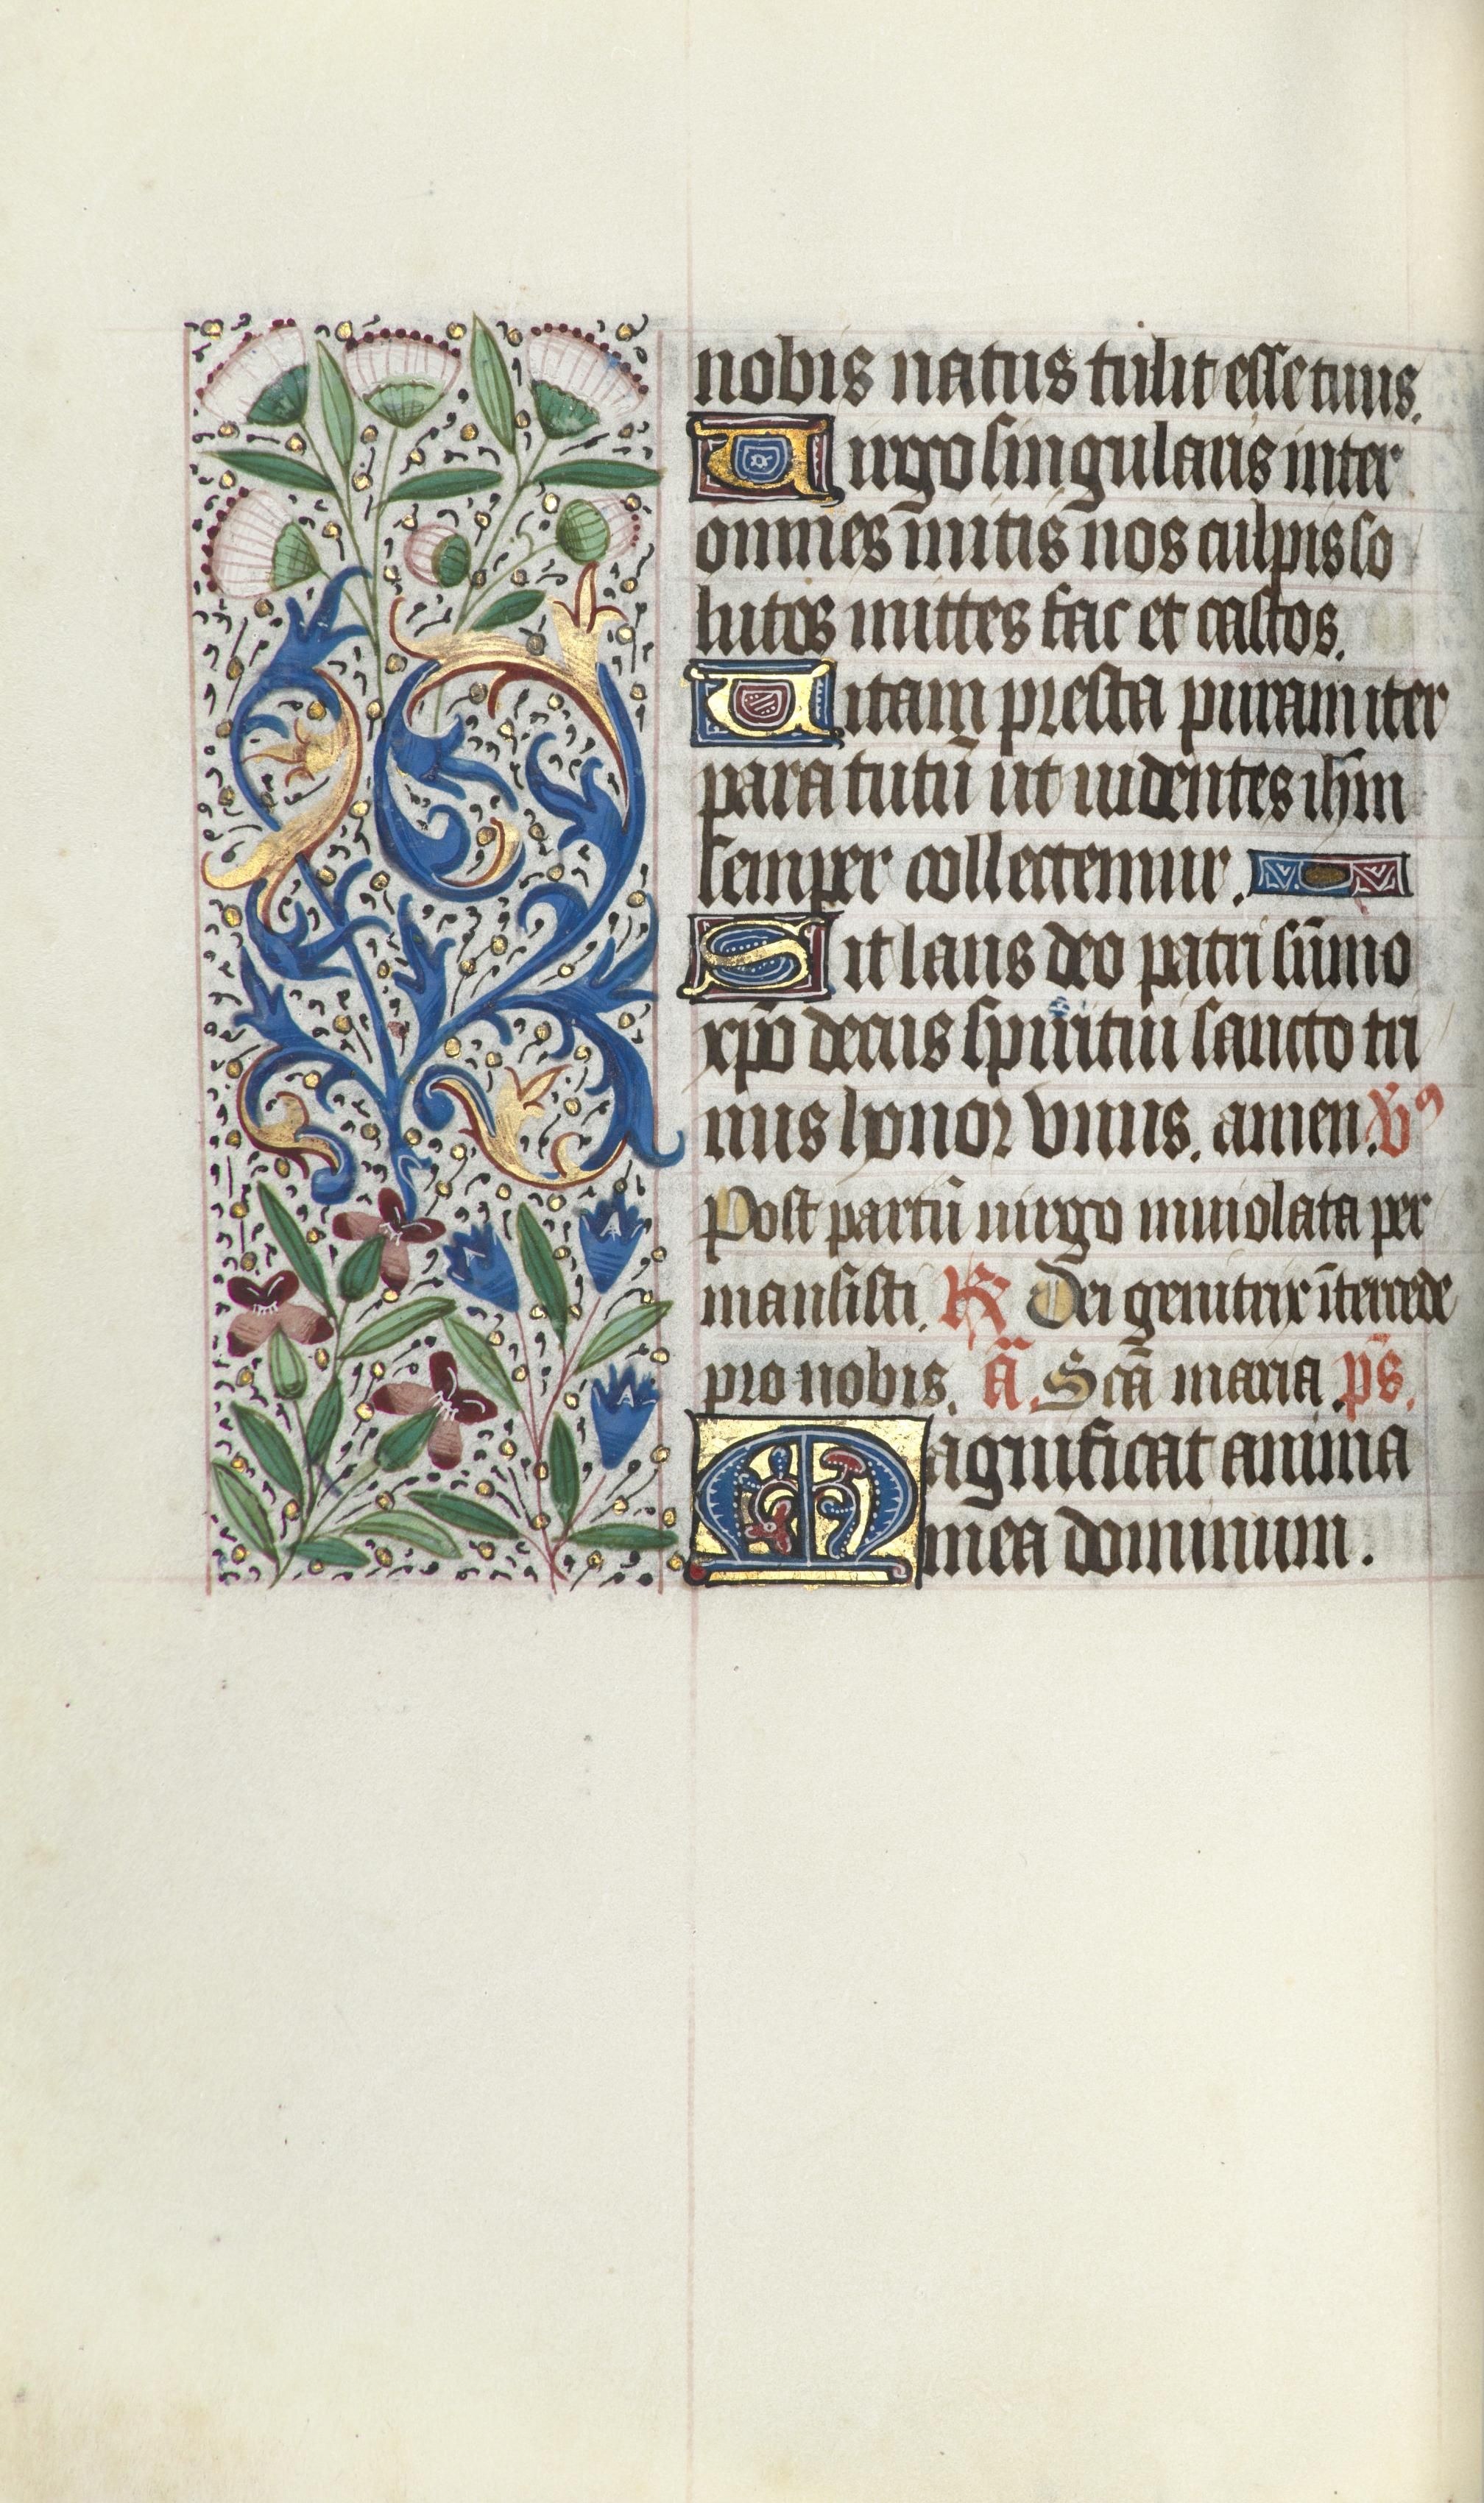 nobis natus tulit esse tuus.
Uirgo singularis inter
omnes mitis nos culpis so
lutos mittes fac et castos.
Uitam presta puram iter
para tutū ut uidentes ihm̄
semper collectemur.
Sit laus deo patri sūmo
xp̄o decus spūitui sancto tri
nus honor vnus. amen. v᷒
Post partū uirgo inuiolata per
mansisti. R Dei genitrix ītercede
pro nobis. ā. Scā maria. ps̄.
Magnificat anima
mea dominum.